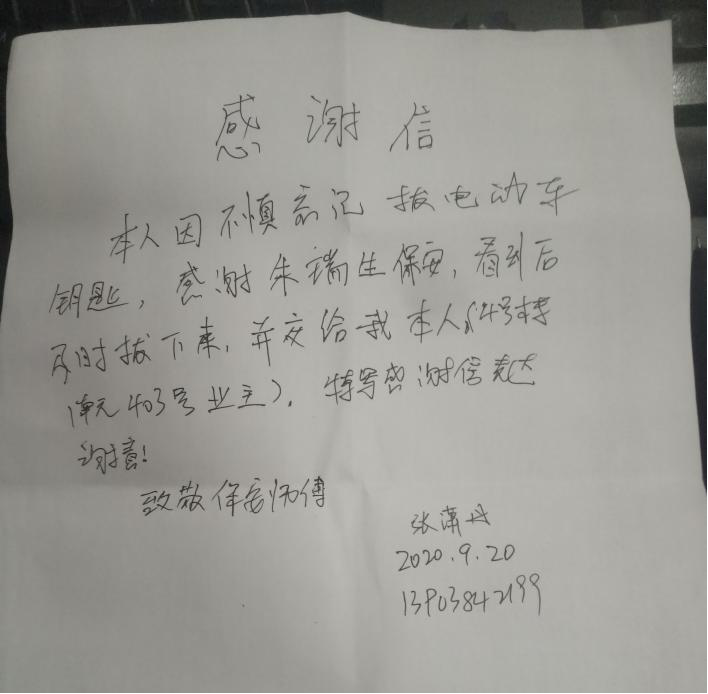 感谢信
本人因不慎忘记拔电动车
钥匙，感谢朱瑞生保安，看到后
及时拔下来，并交给我本人(4号楼
1单元403号业主)。特写感谢信表达
谢意！
致敬保安师傅
张潇丹
2020.9.20
13903842199